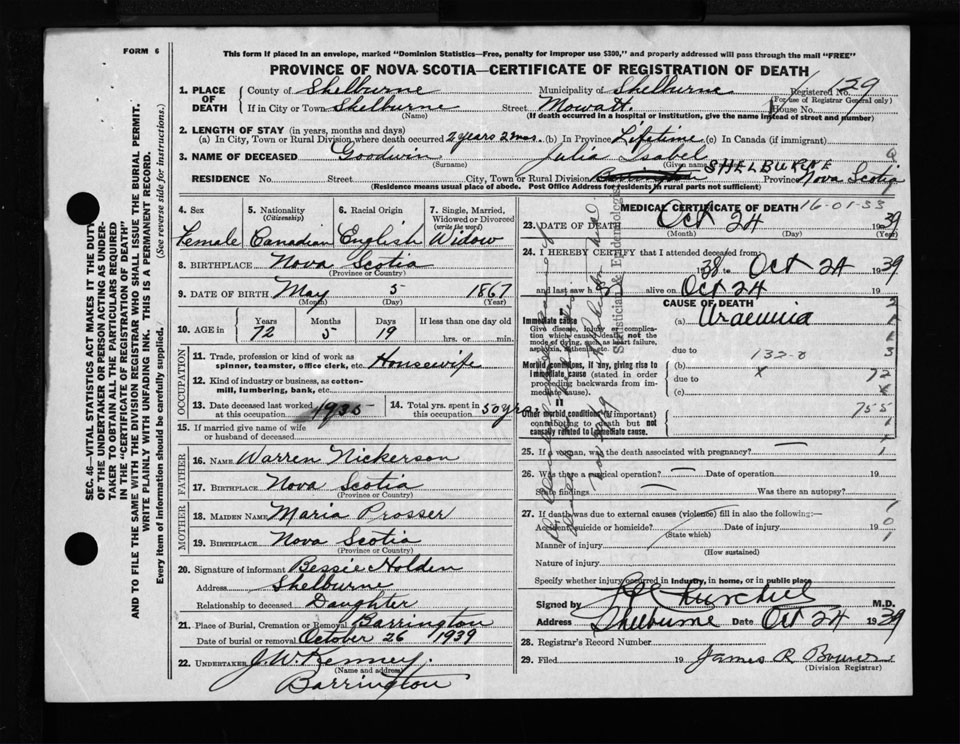 FORM 6
This form if placed in an envelope, marked "Dominion Statistics—Free, penalty for improper use $300," and properly addressed will pass through the mail "FREE"
PROVINCE OF NOVA SCOTIA—CERTIFICATE OF REGISTRATION OF DEATH
1. PLACE OF DEATH County of Shelburne Municipality of Shelburne Registered No. 129
(For use of Registrar General only)
If in City or Town Shelburne Street Mowatt House No.
(Name) (If death occurred in a hospital or institution, give the name instead of street and number)
2. LENGTH OF STAY (in years, months and days)
(a) In City, Town or Rural Division where death occurred 2 years 2 mos. (b) In Province Lifetime (c) In Canada (if immigrant)
3. NAME OF DECEASED Goodwin Julia Isabel
(Surname) (Given name)
SHELBURNE
RESIDENCE No. Street City, Town or Rural Division Barrington Province Nova Scotia
(Residence means usual place of abode. Post Office Address for residents in rural parts not sufficient)
4. Sex 5. Nationality (Citizenship) 6. Racial Origin 7. Single, Married, Widowed or Divorced (write the word)
Female Canadian English Widow
8. BIRTHPLACE Nova Scotia
(Province or Country)
9. DATE OF BIRTH May 5 1867
(Month) (Day) (Year)
10. AGE in Years Months Days If less than one day old
72 5 19 hrs. or min.
OCCUPATION
11. Trade, profession or kind of work as spinner, teamster, office clerk, etc. Housewife
12. Kind of industry or business, as cotton-mill, lumbering, bank, etc.
13. Date deceased last worked at this occupation 1935
14. Total yrs. spent in this occupation 50 yrs.
15. If married give name of wife or husband of deceased
FATHER
16. NAME Warren Nickerson
17. BIRTHPLACE Nova Scotia
(Province or Country)
MOTHER
18. MAIDEN NAME Maria Prosser
19. BIRTHPLACE Nova Scotia
(Province or Country)
20. Signature of informant Bessie Holden
Address Shelburne
Relationship to deceased Daughter
21. Place of Burial, Cremation or Removal Barrington
Date of burial or removal October 26 1939
22. UNDERTAKER J. W. Kenney.
(Name and address)
Barrington
MEDICAL CERTIFICATE OF DEATH 16-01-33
23. DATE OF DEATH Oct 24 1939
(Month) (Day) (Year)
24. I HEREBY CERTIFY that I attended deceased from
38 to Oct 24 1939
and last saw h alive on Oct 24 19
CAUSE OF DEATH
Immediate cause (a) Uraemia
Give disease, injury or complication which caused death, not the mode of dying, such as heart failure, asphyxia, asthenia, etc.
due to
Morbid conditions, if any, giving rise to immediate cause (stated in order proceeding backwards from immediate cause). (b) 132-8
due to x 72
(c)
II
Other morbid conditions (if important) contributing to death but not causally related to immediate cause. 755
Statistician & Epidemiologist
25. If a woman, was the death associated with pregnancy?
26. Was there a surgical operation? Date of operation 19
State findings Was there an autopsy?
27. If death was due to external causes (violence) fill in also the following:—
Accident, suicide or homicide? Date of injury 19
(State which)
Manner of injury
(How sustained)
Nature of injury
Specify whether injury occurred in Industry, in home, or in public place
Signed by Churchill M.D.
Address Shelburne Date Oct 24 1939
28. Registrar's Record Number
29. Filed 19 James R Bower
(Division Registrar)
SEC. 46—VITAL STATISTICS ACT MAKES IT THE DUTY OF THE UNDERTAKER OR PERSON ACTING AS UNDERTAKER TO OBTAIN ALL THE PARTICULARS REQUIRED IN THE "CERTIFICATE OF REGISTRATION OF DEATH" AND TO FILE THE SAME WITH THE DIVISION REGISTRAR WHO SHALL ISSUE THE BURIAL PERMIT.
WRITE PLAINLY WITH UNFADING INK. THIS IS A PERMANENT RECORD.
Every item of information should be carefully supplied. (See reverse side for instructions.)